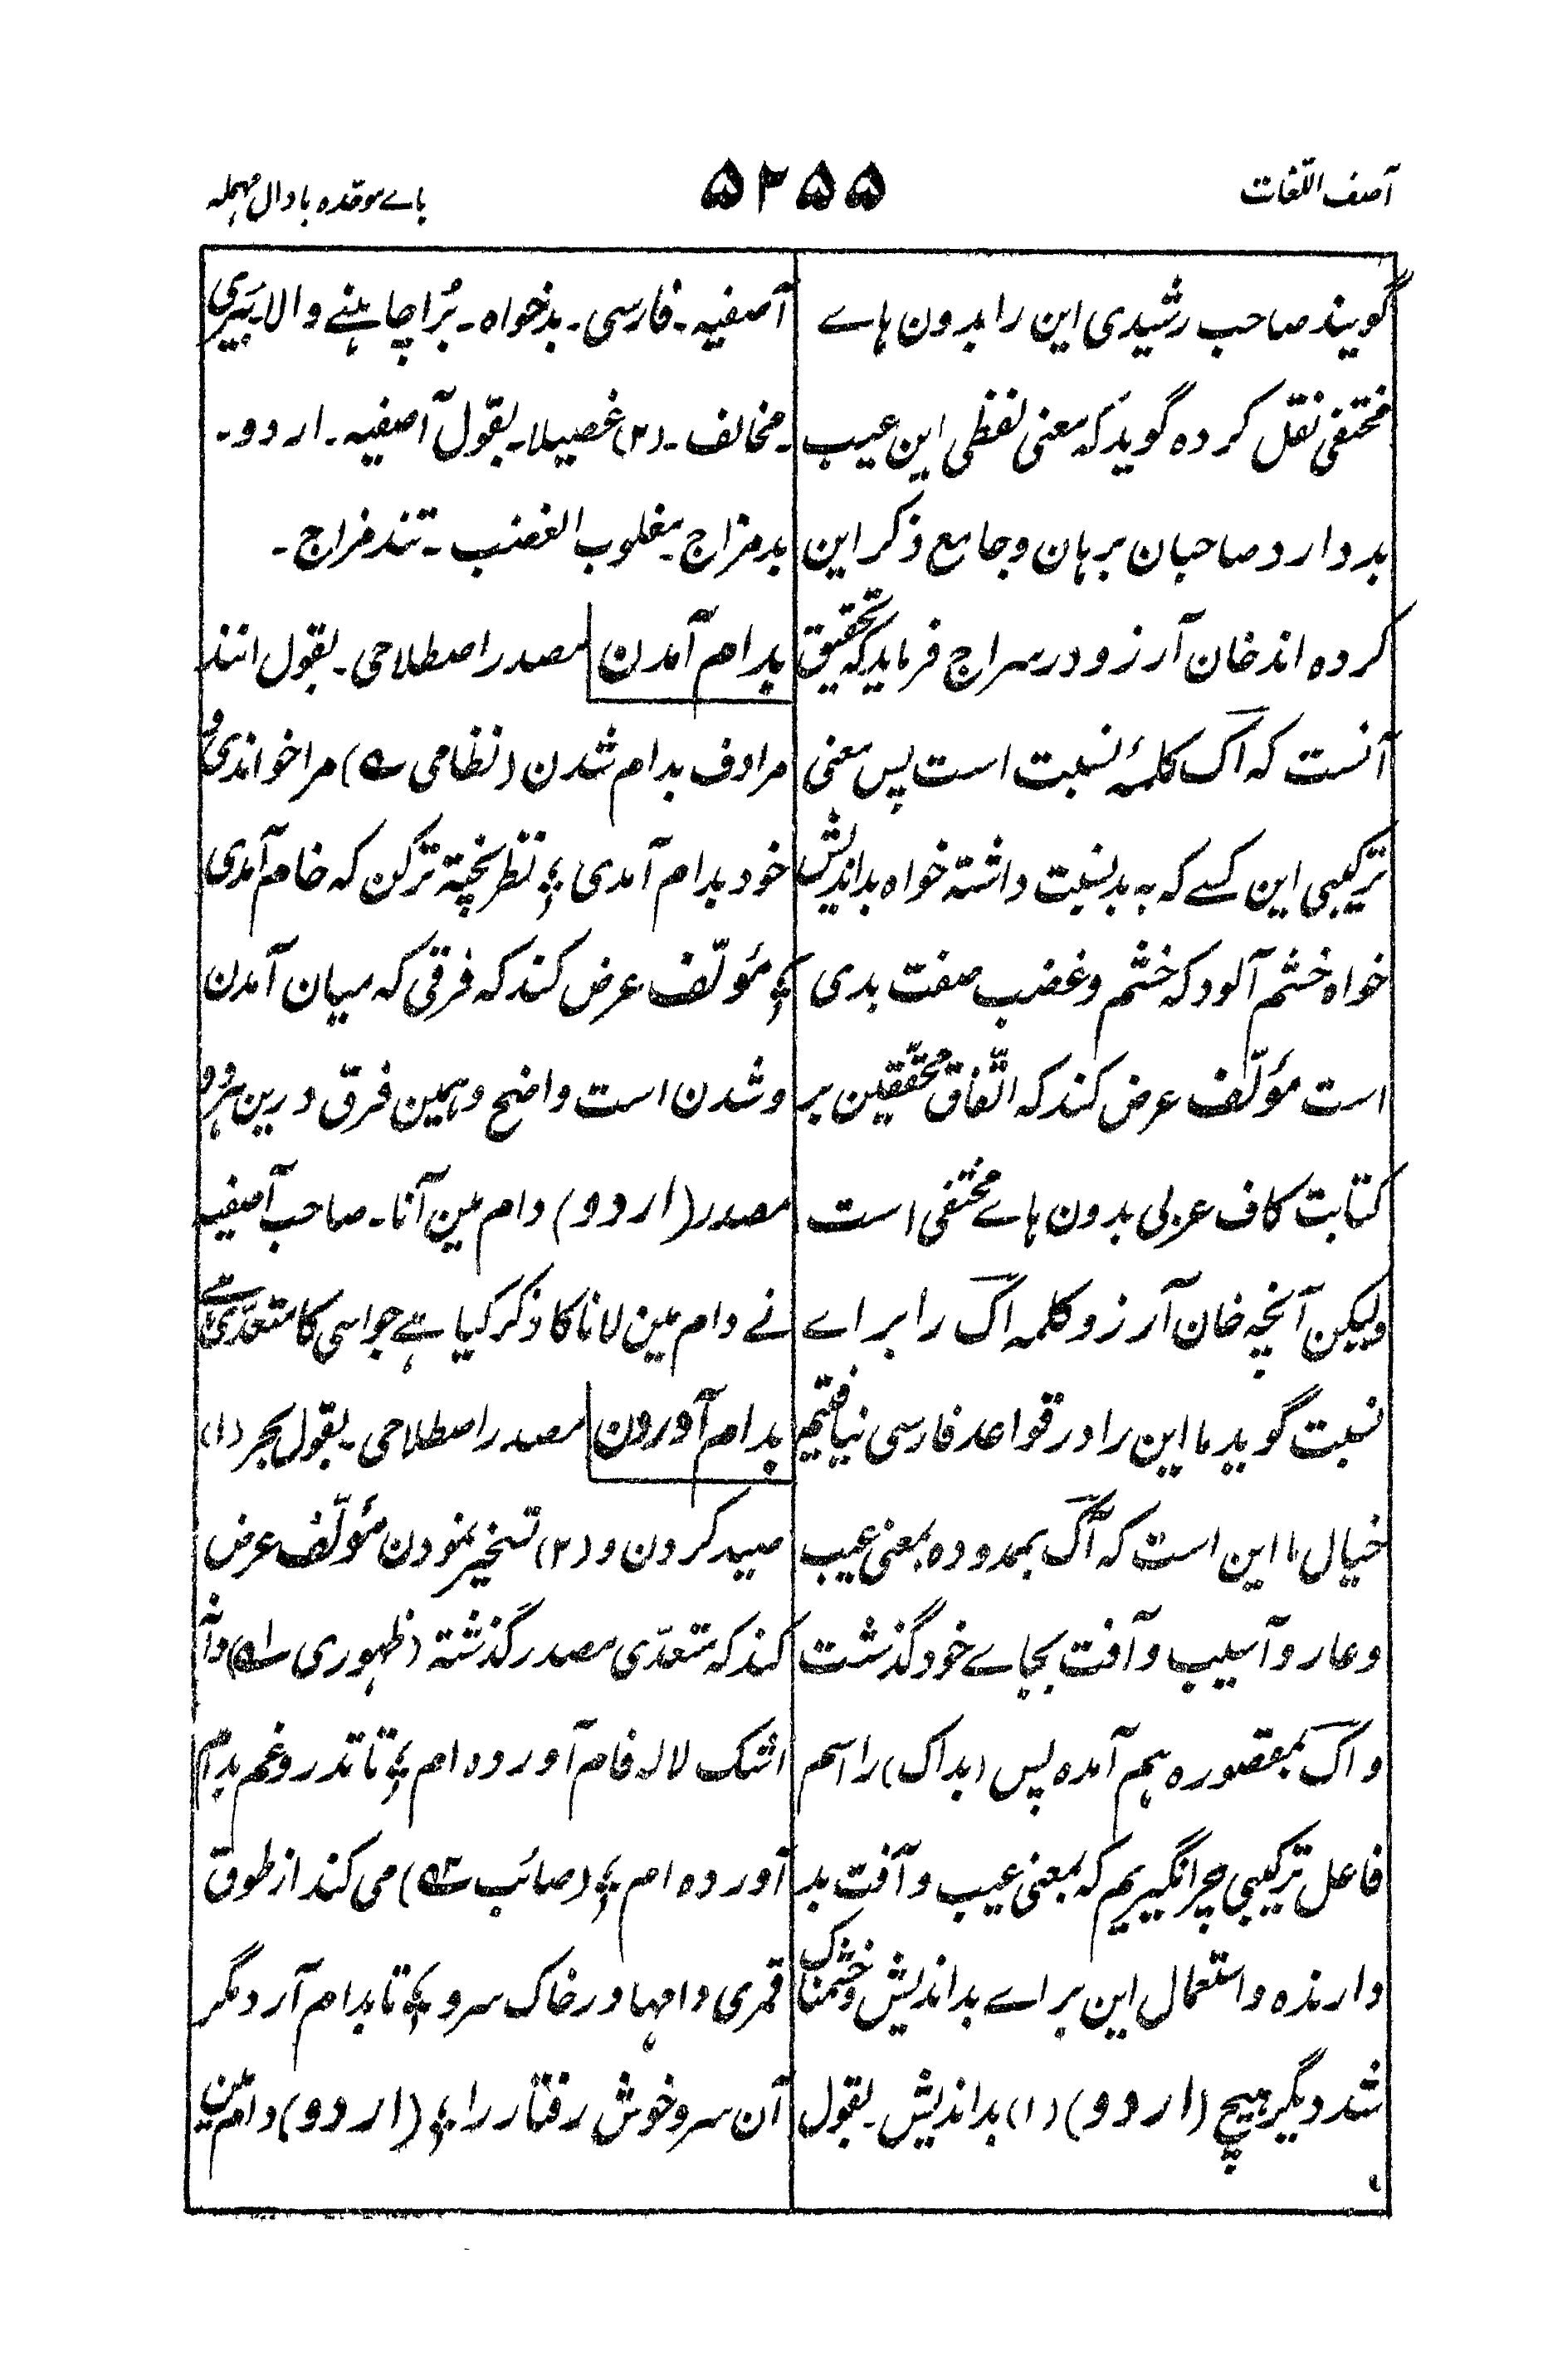 آصف اللّغات
۵۲۵۵
باے موحّدہ با دال مہملہ
گویند صاحب رشیدی این را بدون ہاے
مختفی نقل کردہ گوید کہ معنی لفظی این عیب
بد دارد صاحبان برہان و جامع ذکر این
کردہ اند خان آرزو در سراج فرماید کہ تحقیق
آنست کہ اک کلمۂ نسبت است پس معنی
ترکیبی این کسے کہ بہ بد نسبت داشتہ خواہ بداندیش
خواہ خشم آلود کہ خشم و غضب صفت بدی
است مؤلّف عرض کند کہ اتّفاق محقّقین بر
کتابت کاف عربی بدون ہاے مختفی است
ولیکن آنچہ خان آرزو کلمہ اک را براے
نسبت گوید ما این را در قواعد فارسی نیافتیم
خیال ما این است کہ آک بممدودہ بمعنی عیب
و عار و آسیب و آفت بجاے خود گذشت
و اک بمقصورہ ہم آمدہ پس (بداک) را اسم
فاعل ترکیبی چرا نگیریم کہ بمعنی عیب و آفت بد
دارندہ و استعمال این براے بداندیش و خشمناک
شد دیگر ہیچ (اردو) (۱) بداندیش۔ بقول
آصفیہ۔ فارسی۔ بدخواہ۔ بُرا چاہنے والا۔ بَیری
۔ مخالف۔ (۲) غصیلا۔ بقول آصفیہ۔ اردو۔
بدمزاج۔ مغلوب الغضب۔ تندمزاج۔
بدام آمدن مصدر اصطلاحی۔ بقول انند
مرادف بدام شدن (نظامی ؎) مرا خواندی و
خود بدام آمدی ؛ نظر پختہ تر کن کہ خام آمدی
؛ مؤلّف عرض کند کہ فرقی کہ میان آمدن
و شدن است واضح و ہمین فرق درین ہر دو
مصدر (اردو) دام مین آنا۔ صاحب آصفیہ
نے دام مین لانا کا ذکر کیا ہے جو اسی کا متعدّی ہے
بدام آوردن مصدر اصطلاحی۔ بقول بحر (۱)
صید کردن و (۲) تسخیر نمودن مؤلّف عرض
کند کہ متعدّی مصدر گذشتہ (ظہوری ؎۱)
اشک لالہ فام آوردہ ام ؛ تا تذرو غم بدام
آوردہ ام ؛ (صائب ؎۲) می کند از طوق
قمری دامہا در خاک سرو ؛ تا بدام آرد مگر
آن سرو خوش رفتار را ؛ (اردو) دام مین